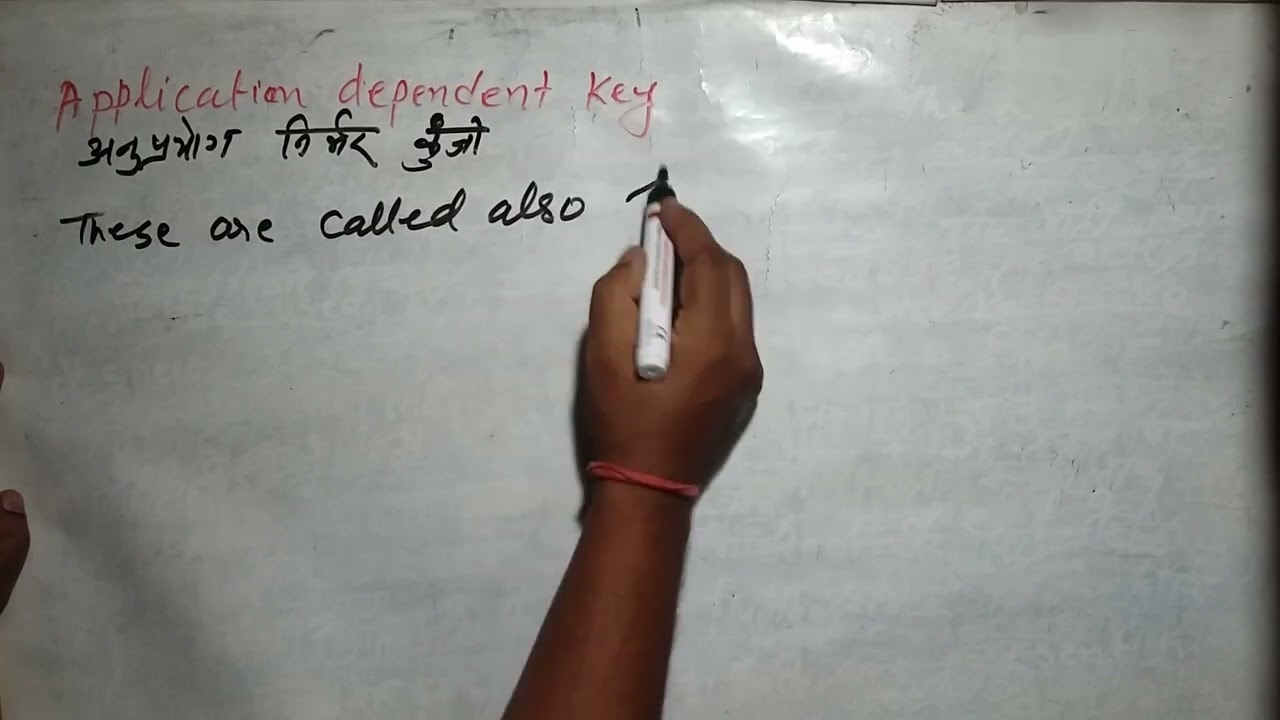 Application dependent Key
अनुप्रयोग निर्भर कुँजी
These are called also